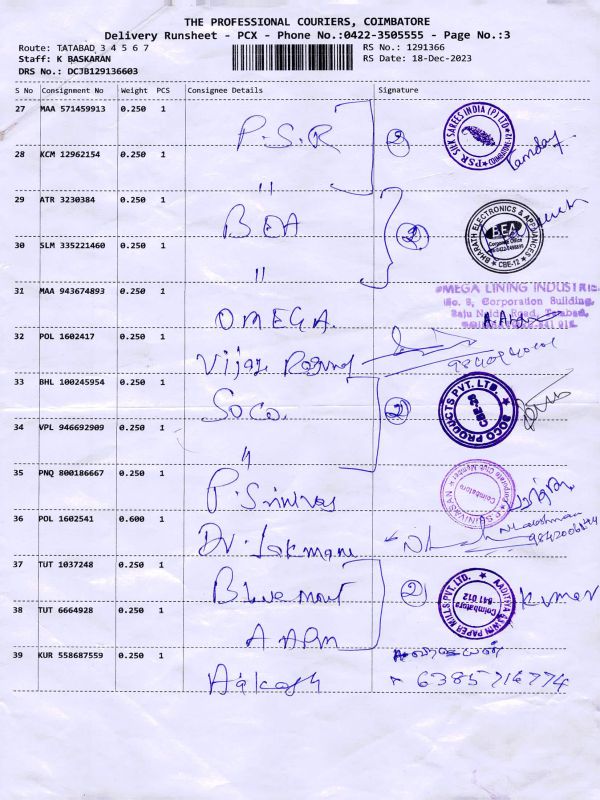 THE PROFESSIONAL COURIERS, COIMBATORE
Delivery Runsheet - PCX - Phone No.:0422-3505555 - Page No.:3
Route: TATABAD 3 4 5 6 7 RS No.: 1291366
Staff: K BASKARAN RS Date: 18-Dec-2023
DRS No.: DCJB129136603
S No Consignment No Weight PCS Consignee Details Signature
27 MAA 571459913 0.250 1 P.S.R 2 PSR SILK SAREES INDIA (P) LTD COIMBATORE-12
28 KCM 12962154 0.250 1 "
29 ATR 3230384 0.250 1 BEA 2 BHARATH ELECTRONICS & APPLIANCES BEA Corporate Office CBE-12
30 SLM 335221460 0.250 1 "
31 MAA 943674893 0.250 1 OMEGA OMEGA LINING INDUSTRIES
No. 9, Corporation Building,
Raju Naidu Road, Tatabad,
32 POL 1602417 0.250 1 Vijay
33 BHL 100245954 0.250 1 Soco. 2 SOCO PRODUCTS PVT. LTD. CBE-12
34 VPL 946692909 0.250 1 "
35 PNQ 800186667 0.250 1 P. Srinivas P.SRINIVASAN Coimbatore
36 POL 1602541 0.600 1 Dr. Lakmane N Lakshmanan
37 TUT 1037248 0.250 1 Blue mount 2 AADITYA ASWIN PAPER MILLS PVT. LTD. Coimbatore 641 012 Kumar
38 TUT 6664928 0.250 1 AAPM
39 KUR 558687559 0.250 1 Aakash 6385716774